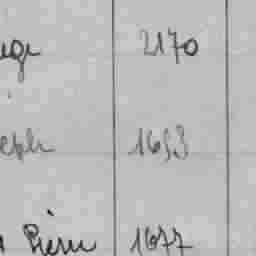 2170
seph 1653
Pierre 1677